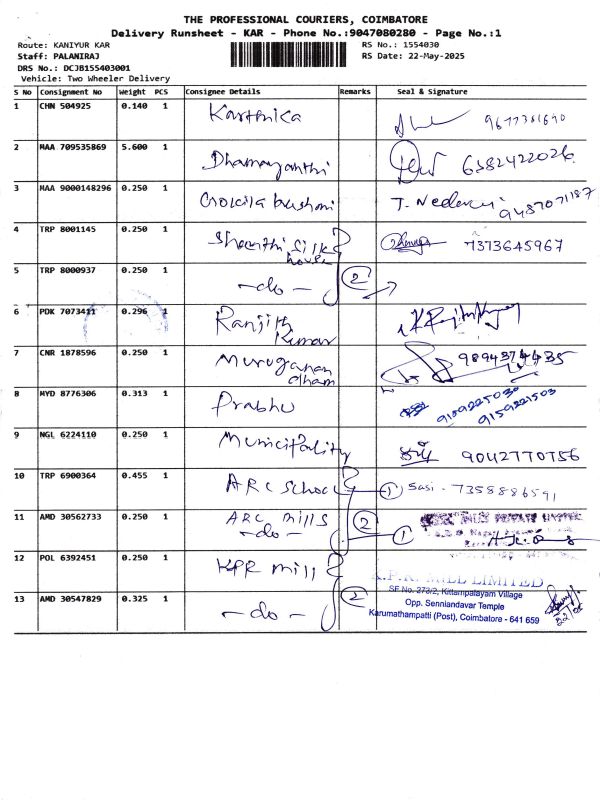 THE PROFESSIONAL COURIERS, COIMBATORE
Delivery Runsheet - KAR - Phone No.:9047080280 - Page No.:1
Route: KANIYUR KAR
RS No.: 1554030
Staff: PALANIRAJ
RS Date: 22-May-2025
DRS No.: DCJB155403001
Vehicle: Two Wheeler Delivery
S No Consignment No Weight PCS Consignee Details Remarks Seal & Signature
1 CHN 504925 0.140 1 Karthika
2 MAA 709535869 5.600 1 Dhamayanthi 6382422026
3 MAA 9000148296 0.250 1 9487071187
4 TRP 8001145 0.250 1 Shanthi Silk house 7373645967
5 TRP 8000937 0.250 1 -do- 2
6 PDK 7073411 0.296 1 Ranjith Kumar
7 CNR 1878596 0.250 1 Muruganandham 9894374435
8 MYD 8776306 0.313 1 Prabhu 9159221503
9 NGL 6224110 0.250 1 Municipality 9042770756
10 TRP 6900364 0.455 1 ARC School 1 Sasi - 7358886591
11 AMD 30562733 0.250 1 ARC mills -do- 2 1
12 POL 6392451 0.250 1 KPR mill
K.P.R. MILL LIMITED
13 AMD 30547829 0.325 1 -do- 2
SF No. 273/2, Kittampalayam Village
Opp. Senniandavar Temple
Karumathampatti (Post), Coimbatore - 641 659